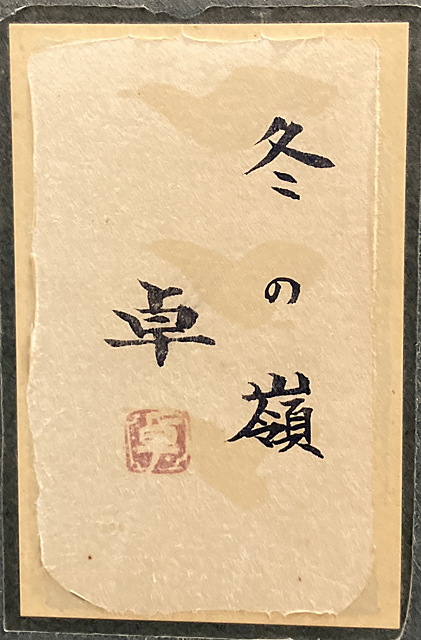 冬の嶺
卓
卓